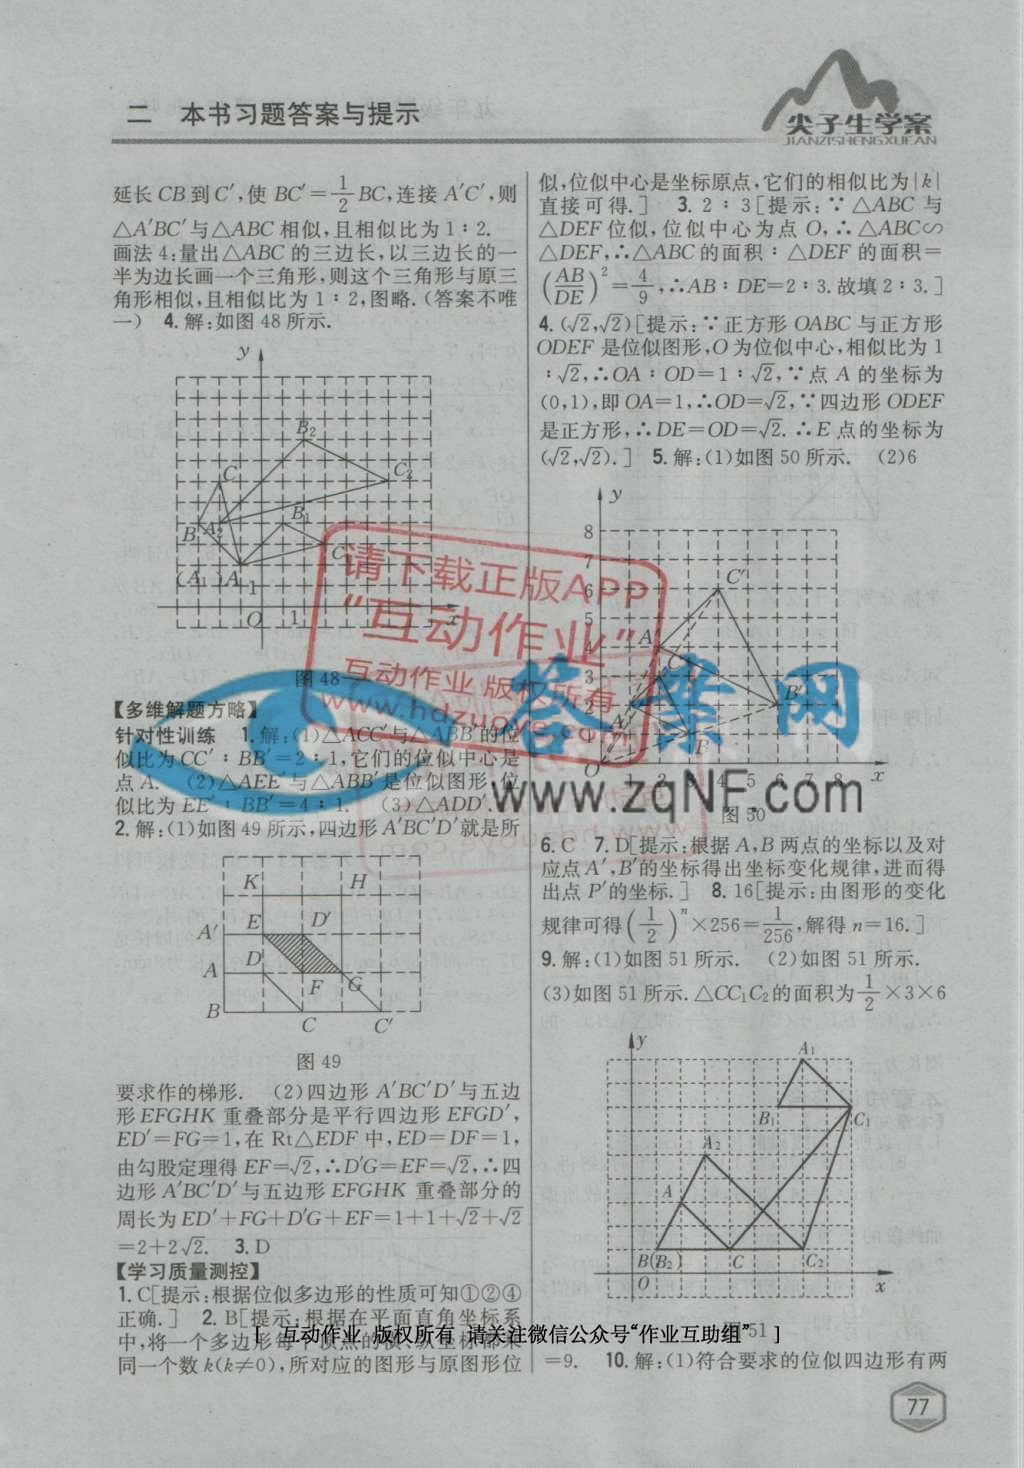 二 本书习题答案与提示
尖子生学案
JIANZISHENGXUEAN
延长 CB 到 C′,使 BC′=1/2BC,连接 A′C′,则
△A′BC′与△ABC 相似,且相似比为 1∶2.
画法 4:量出△ABC 的三边长,以三边长的一
半为边长画一个三角形,则这个三角形与原三
角形相似,且相似比为 1∶2,图略.(答案不唯
一) 4.解:如图 48 所示.
y
B₂
C
C₂
B
A₂
B₁
C₁
(A₁)
A
1
O
1
x
图 48
【多维解题方略】
针对性训练 1.解:(1)△ACC′与△ABB′的位
似比为 CC′∶BB′=2∶1,它们的位似中心是
点 A. (2)△AEE′与△ABB′是位似图形,位
似比为 EE′∶BB′=4∶1. (3)△ADD′.
2.解:(1)如图 49 所示,四边形 A′BC′D′就是所
K
H
E
D′
A′
D
A
F
G
B
C
C′
图 49
要求作的梯形. (2)四边形 A′BC′D′与五边
形 EFGHK 重叠部分是平行四边形 EFGD′,
ED′=FG=1,在 Rt△EDF 中,ED=DF=1,
由勾股定理得 EF=√2,∴D′G=EF=√2,∴四
边形 A′BC′D′与五边形 EFGHK 重叠部分的
周长为 ED′+FG+D′G+EF=1+1+√2+√2
=2+2√2. 3.D
【学习质量测控】
1.C[提示:根据位似多边形的性质可知①②④
正确.] 2.B[提示:根据在平面直角坐标系
中,将一个多边形每个顶点的横、纵坐标都乘
同一个数 k(k≠0),所对应的图形与原图形位
似,位似中心是坐标原点,它们的相似比为|k|
直接可得.] 3.2∶3[提示:∵△ABC 与
△DEF 位似,位似中心为点 O,∴△ABC∽
△DEF,∴△ABC 的面积∶△DEF 的面积=
(AB/DE)²=4/9,∴AB∶DE=2∶3.故填 2∶3.]
4.(√2,√2)[提示:∵正方形 OABC 与正方形
ODEF 是位似图形,O 为位似中心,相似比为 1
∶√2,∴OA∶OD=1∶√2,∵点 A 的坐标为
(0,1),即 OA=1,∴OD=√2,∵四边形 ODEF
是正方形,∴DE=OD=√2.∴E 点的坐标为
(√2,√2).] 5.解:(1)如图 50 所示. (2)6
y
8
7
6
5
4
3
2
1
C′
A′
C
B′
A
B
O
1 2 3 4 5 6 7 8 x
图 50
6.C 7.D[提示:根据 A,B 两点的坐标以及对
应点 A′,B′的坐标得出坐标变化规律,进而得
出点 P′的坐标.] 8.16[提示:由图形的变化
规律可得(1/2)ⁿ×256=1/256,解得 n=16.]
9.解:(1)如图 51 所示. (2)如图 51 所示.
(3)如图 51 所示.△CC₁C₂的面积为1/2×3×6
y
A₁
B₁
C₁
A₂
A
B(B₂)
C
C₂
O
x
图 51
=9. 10.解:(1)符合要求的位似四边形有两
77
请下载正版APP
“互动作业”
互动作业 版权所有
www.hdzuoye.com
答案网
www.zqNF.com
[ 互动作业 版权所有 请关注微信公众号“作业互助组” ]